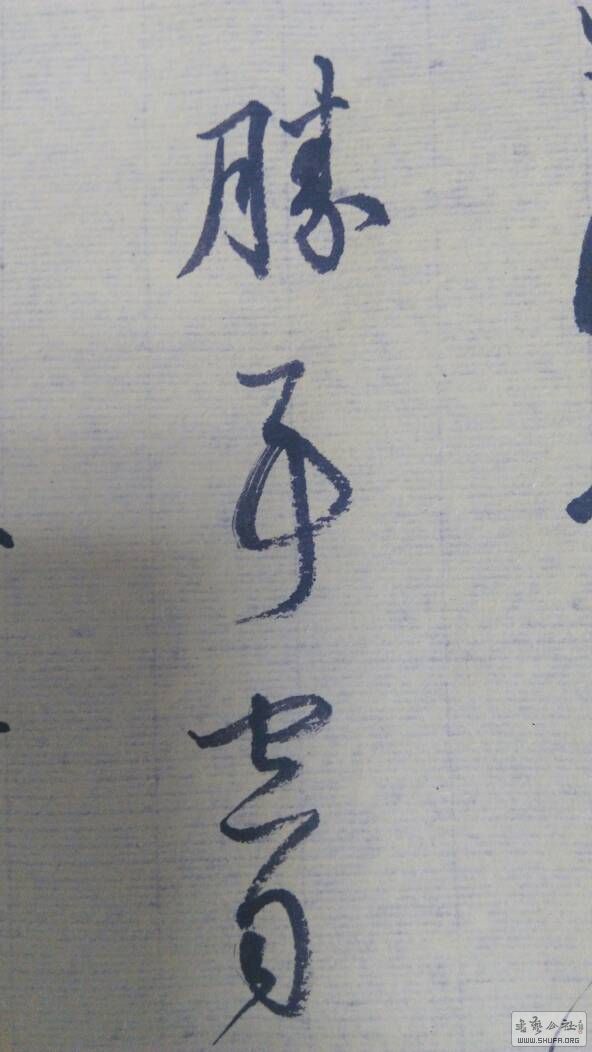 勝事空自
書藝公社
WWW.SHUFA.ORG